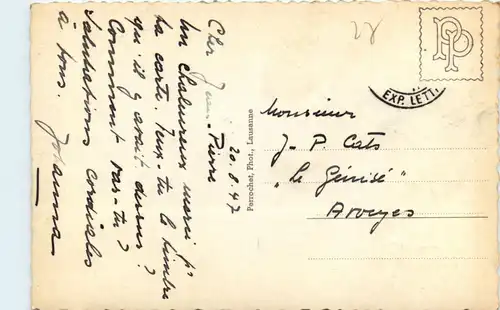 20.8.47
Cher Jean-Pierre
Un chaleureux merci pr
ta carte. Veux-tu le timbre
qu'il y avait dessus?
Comment vas-tu?
Salutations cordiales
à tous. Johanna
Perrochet, Phot., Lausanne
22
PP
EXP. LETT.
Monsieur
J-P. Cats
"Le Génisé"
Arveyes